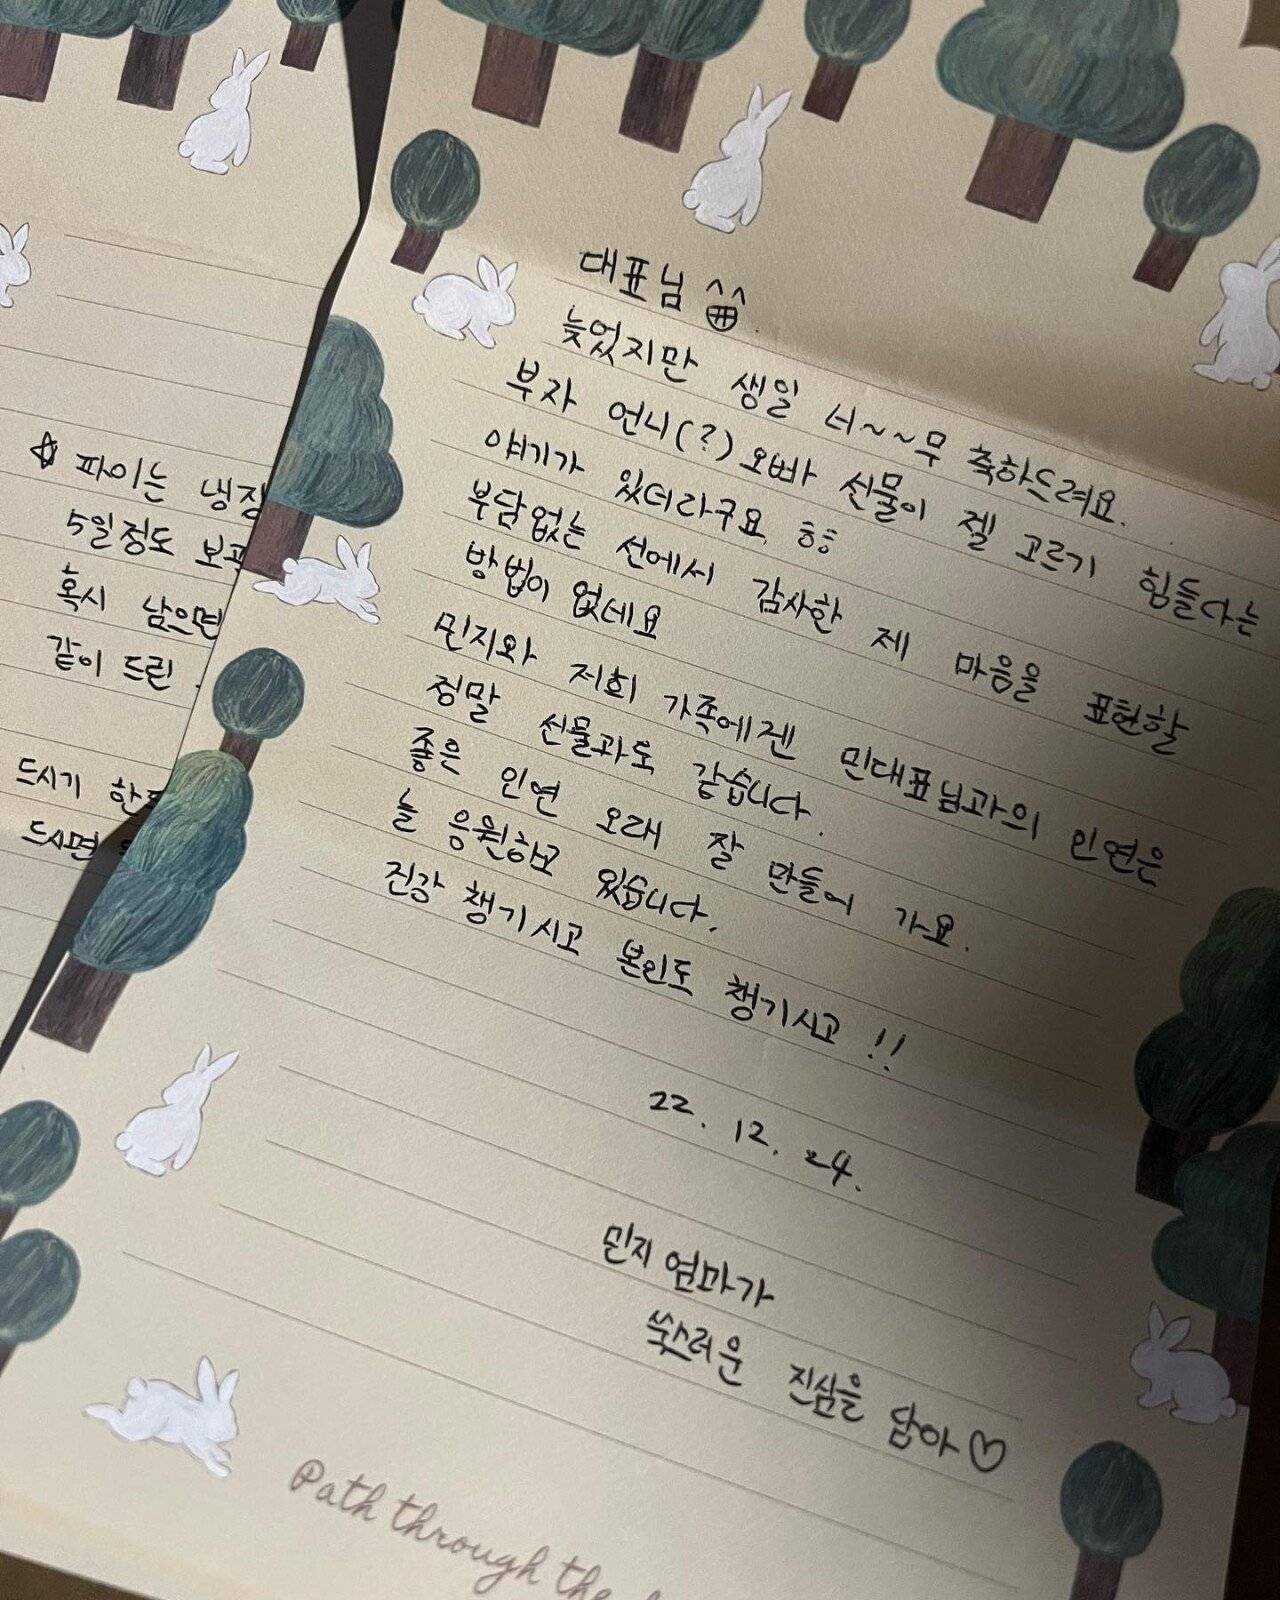 대표님
늦었지만 생일 너~~무 축하드려요.
부자 언니(?)오빠 선물이 젤 고르기 힘들다는
얘기가 있더라구요. ㅎㅎ
부담없는 선에서 감사한 제 마음을 표현할
방법이 없네요
민지와 저희 가족에겐 민대표님과의 인연은
정말 선물과도 같습니다.
좋은 인연 오래 잘 만들어 가요.
늘 응원하고 있습니다.
건강 챙기시고 본인도 챙기시고 !!
22. 12. 24.
민지 엄마가
쑥스러운 진심을 담아♡
Path through the
☆ 파이는 냉장
5일정도
혹시 남으면
같이 드린
드시기
드시면